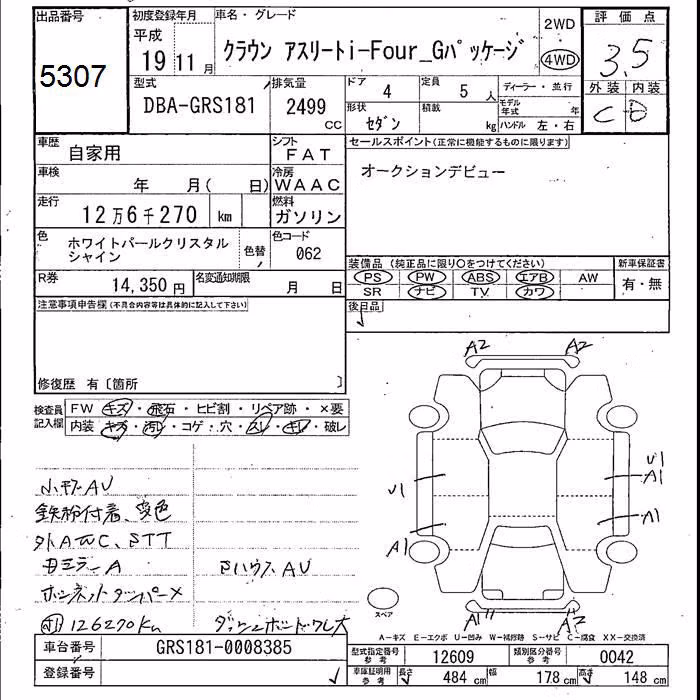 出品番号
5307
初度登録年月
平成
19年11月
車名・グレード
クラウン アスリートi-Four_Gパッケージ
2WD
4WD
評価点
3.5
外装 内装
C D
型式
DBA-GRS181
排気量
2499
CC
ドア
4
定員
5 人
形状
セダン
積載
kg
ディーラー・並行
モデル年式
年
ハンドル 左・右
車歴
自家用
シフト
FAT
車検
年 月( 日)
冷房
WAAC
走行
12万6千270 km
燃料
ガソリン
色
ホワイトパールクリスタル
シャイン
色替
色コード
062
R券
14,350円
名変通知期限
月 日
セールスポイント(正常に機能するものに限ります)
オークションデビュー
装備品 (純正品に限り○をつけてください)
PS PW ABS エアB AW
SR ナビ TV カワ
新車保証書
有・無
後日品
注意事項申告欄(不具合内容等は具体的に記入して下さい)
修復歴 有〔箇所 〕
検査員
記入欄
FW キズ・飛石・ヒビ割・リペア跡・×要
内装 キズ・汚レ・コゲ・穴・スレ・キレ・破レ
小キズAU
鉄粉付着、変色
STT
ミラーA
ボンネットダンパー×
126270Km
ハウスAU
A2 A2
U1
A1
U1
A1
A1
A1
スペア
A-キズ E-エクボ U-凹み W-補修跡 S-サビ C-腐食 XX-交換済
車台番号
GRS181-0008385
登録番号
型式指定番号
参考
12609
類別区分番号
参考
0042
車庫証明用
参考
長さ
484 cm
幅
178 cm
高さ
148 cm